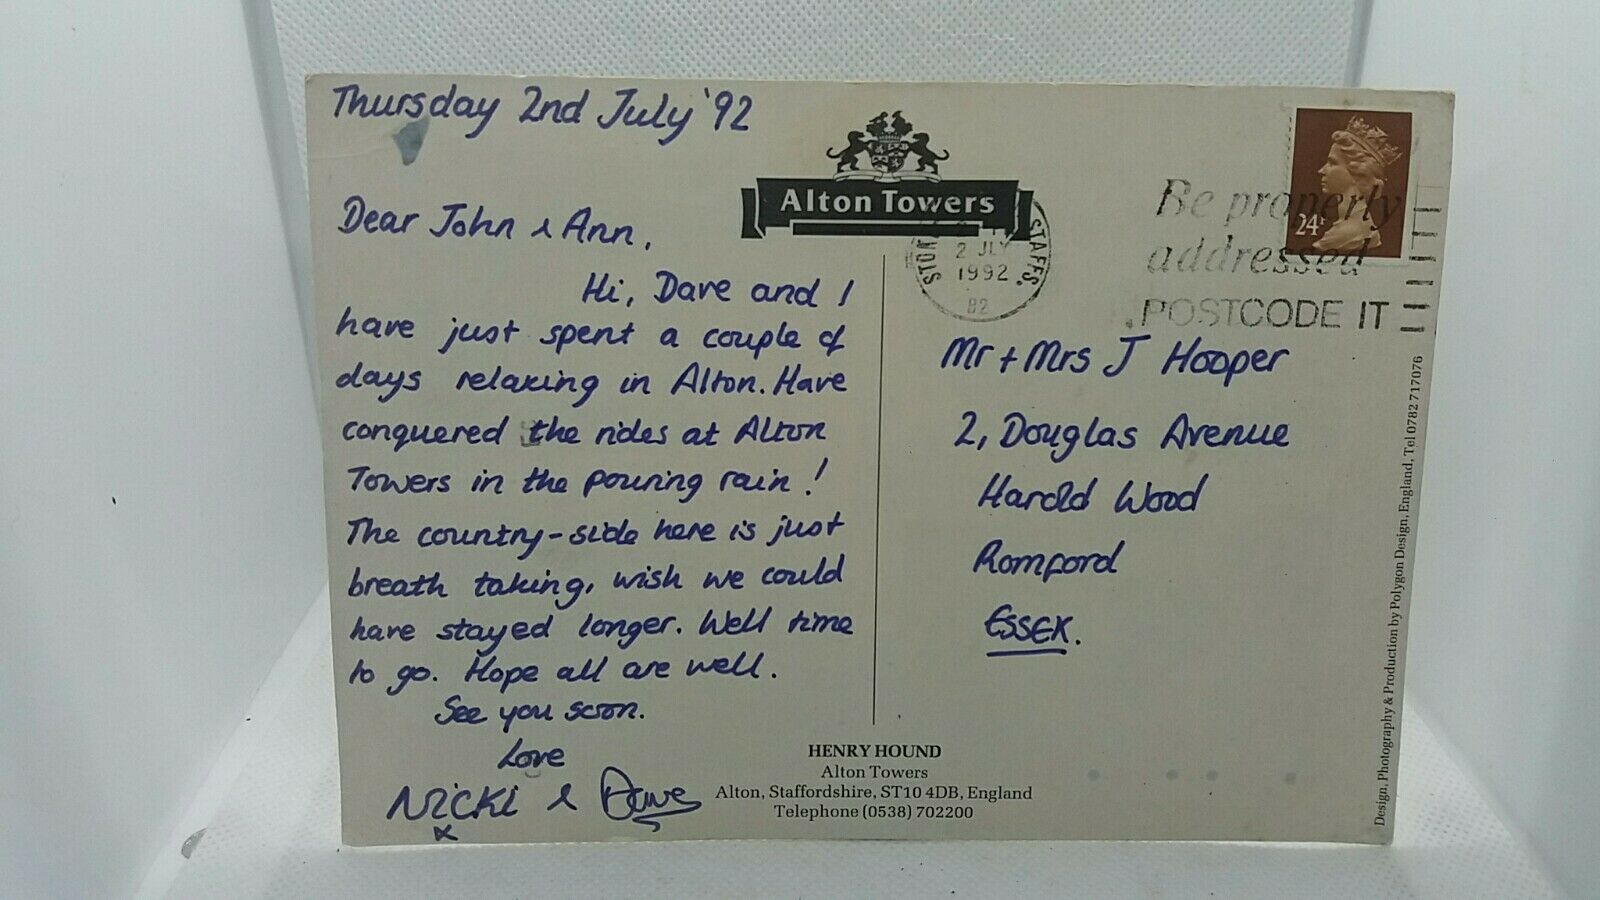 Thursday 2nd July '92
Alton Towers
Dear John & Ann,
Hi, Dave and I
have just spent a couple of
days relaxing in Alton. Have
conquered the rides at Alton
Towers in the pouring rain!
The country-side here is just
breath taking, wish we could
have stayed longer. Well time
to go. Hope all are well.
See you soon.
Love
Nicki & Dave
x
24P
STAFFS.
2 JLY
1992
B2
Be properly
addressed
POSTCODE IT
Mr + Mrs J Hooper
2, Douglas Avenue
Harold Wood
Romford
ESSEX.
HENRY HOUND
Alton Towers
Alton, Staffordshire, ST10 4DB, England
Telephone (0538) 702200
Design, Photography & Production by Polygon Design, England, Tel 0782 717076